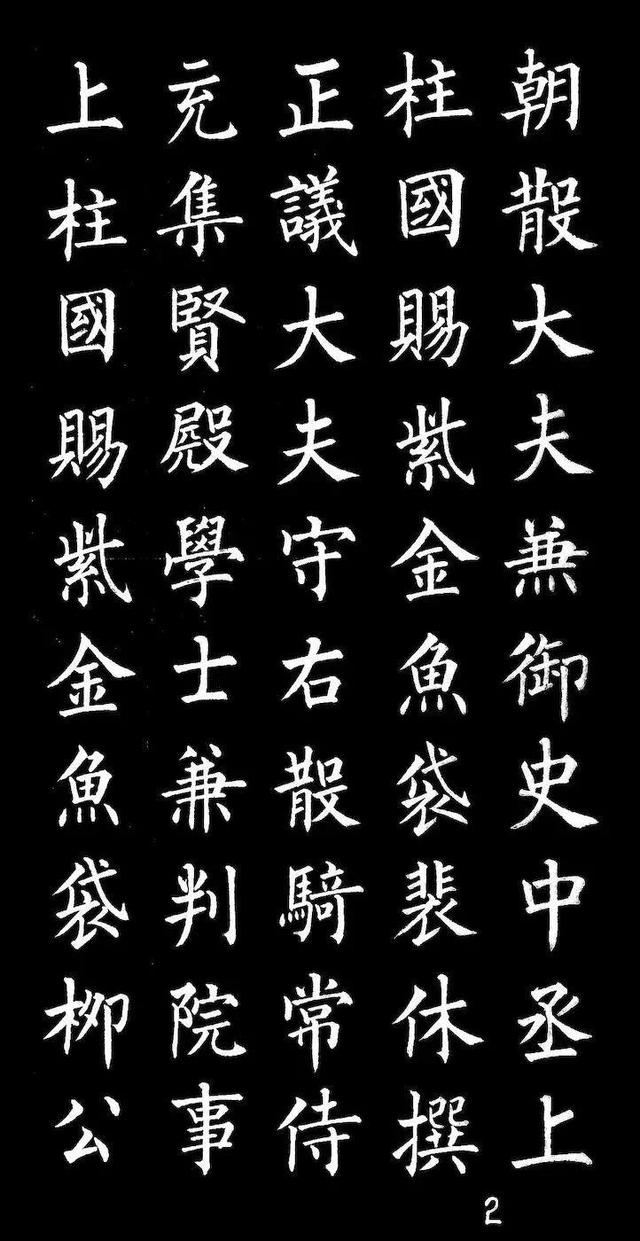 朝散大夫兼御史中丞上
柱國賜紫金魚袋裴休撰
正議大夫守右散騎常侍
充集賢殿學士兼判院事
上柱國賜紫金魚袋柳公
2